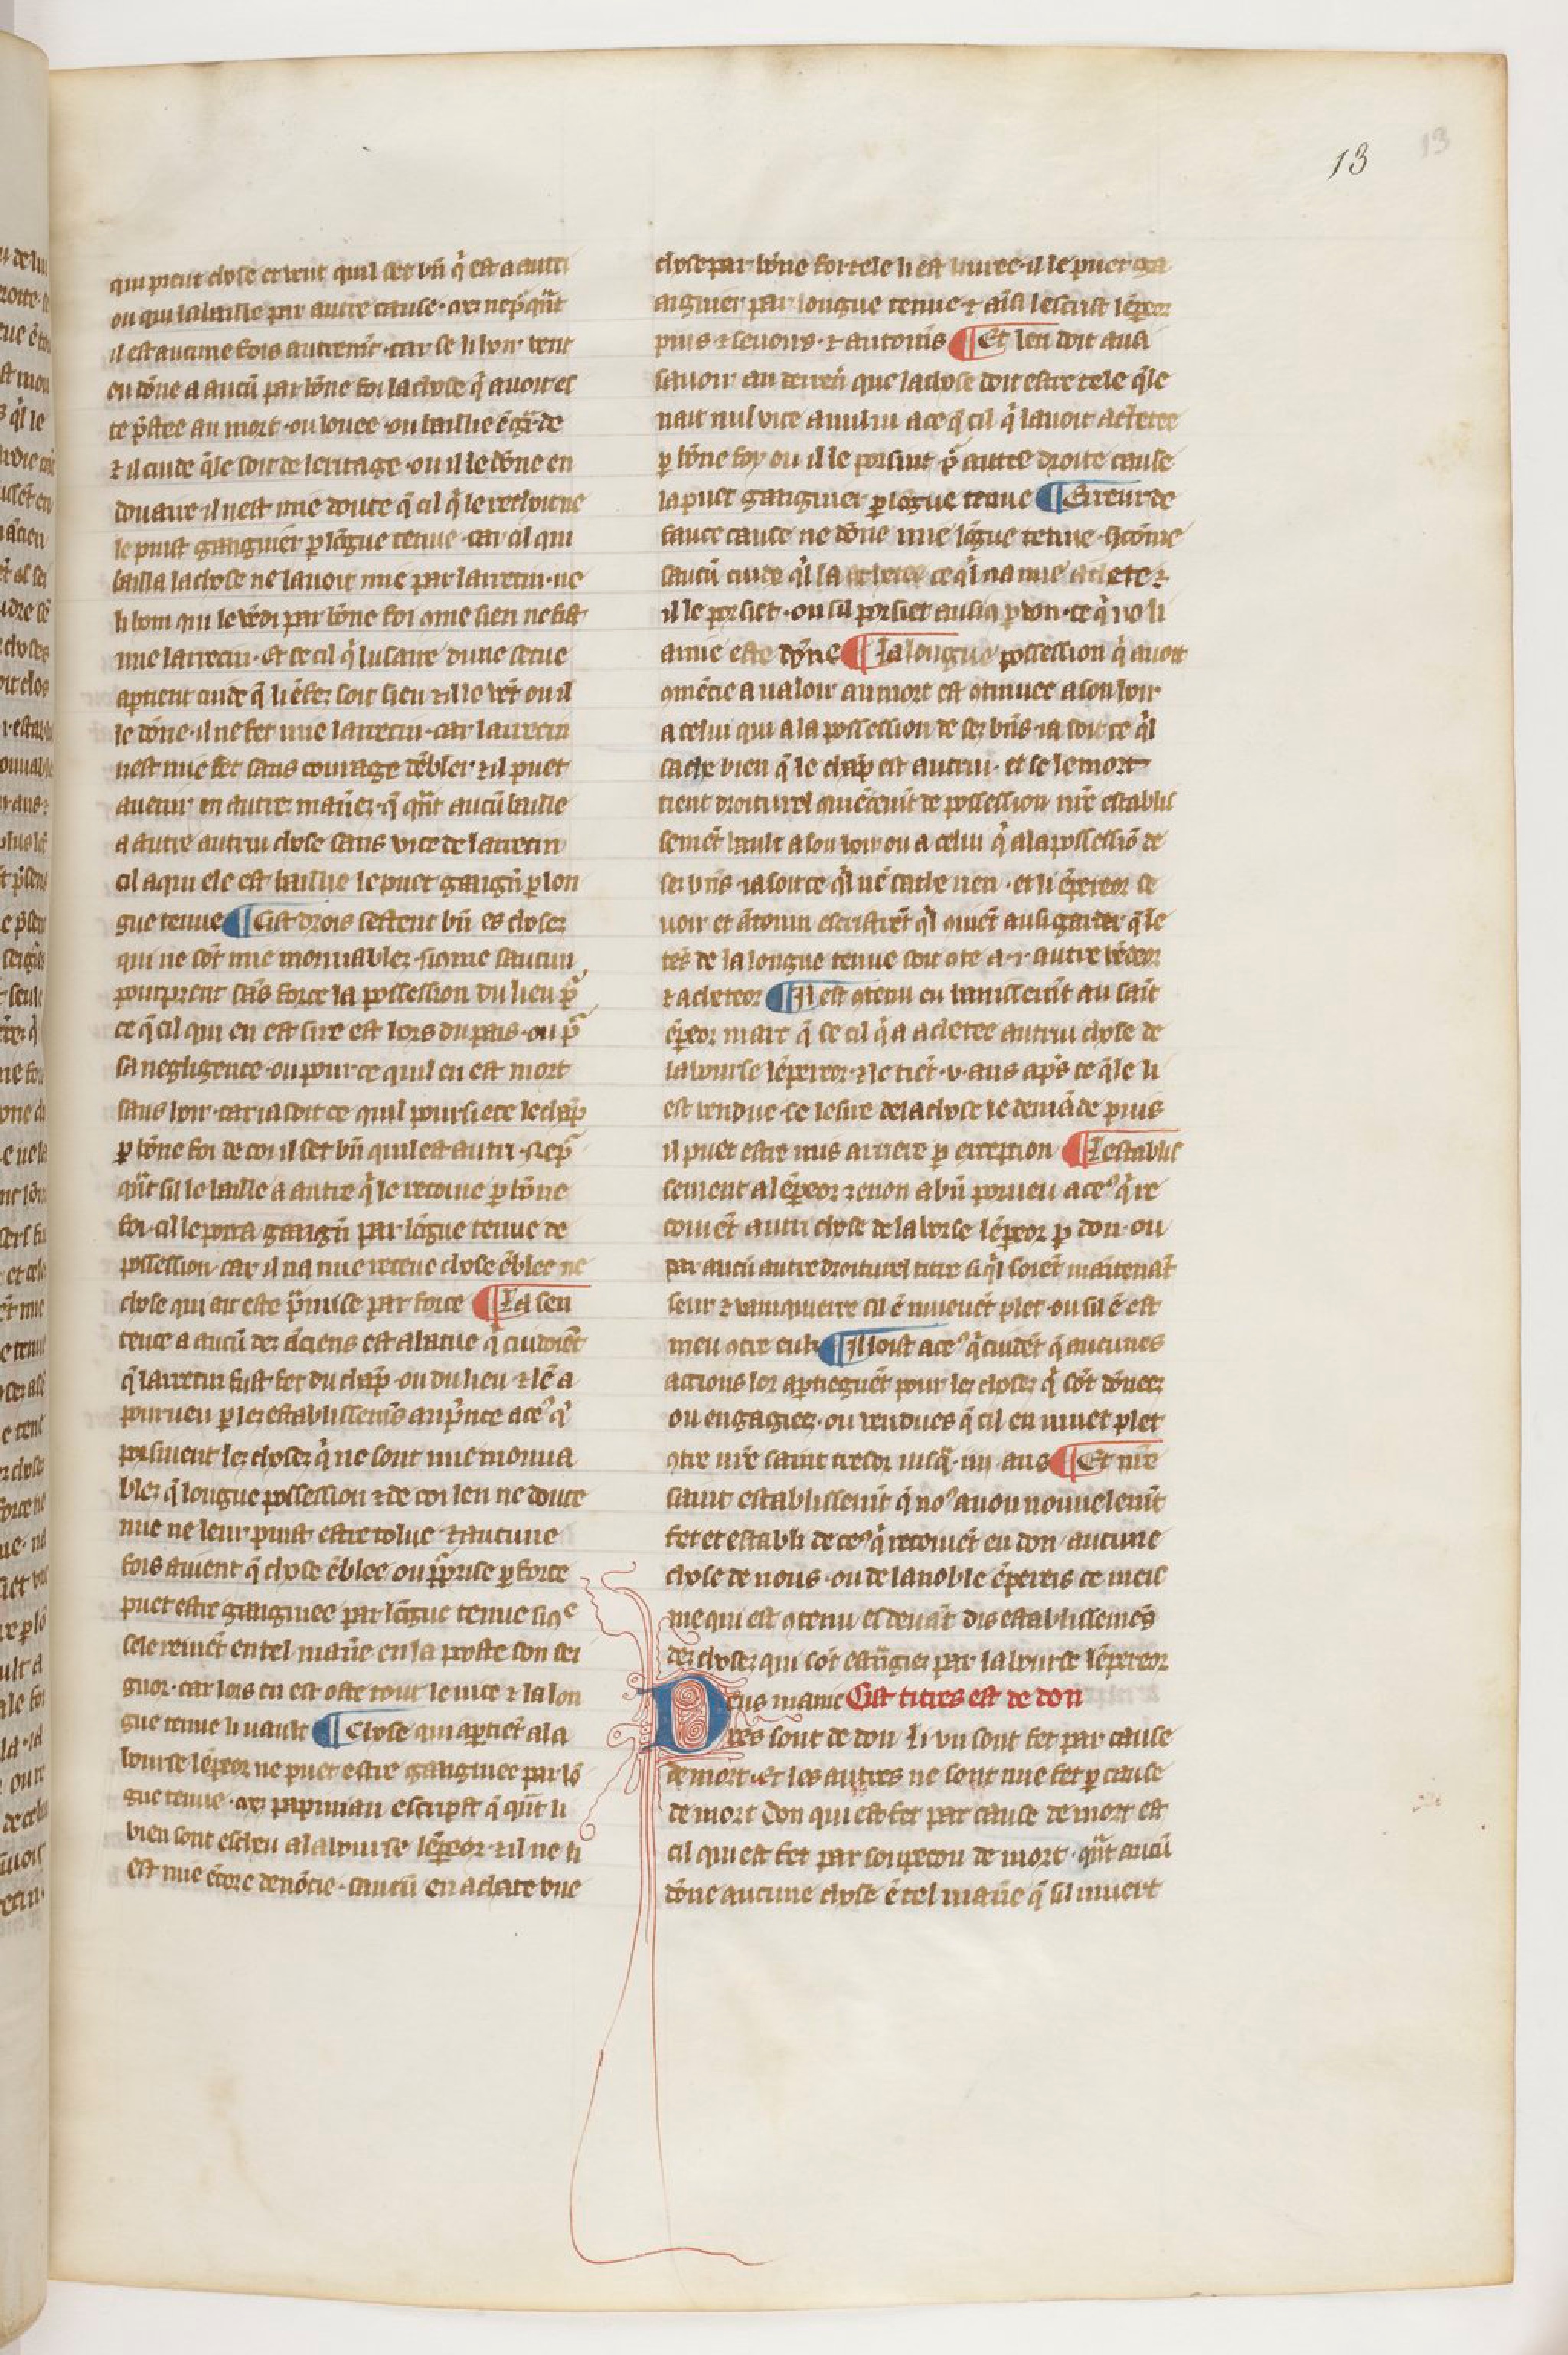 13
13
qui prent chose et vent quil set bn̄ q̇ est a autri
ou qui la baille par autre cause · mes nep̄q̄nt
il est aucune fois autremēt · car se li hoir vent
ou dōne a aucū par bōne foi la chose q̇ avoit es
te p̄stee au mort · ou louee · ou baillie ē garde
⁊ il cuide q̄le soit de leritage · ou il le dōne en
douaire il nest mie doute q̄ cil q̇ le rechoivre
le puist gaaignier p lōgue tenue · car cil qui
bailla la chose ne lavoit mie par larrecin · ne
li hom qui le vēdi par bōne foi 9me sien ne fist
mie larrecin · Et se cil q̇ lusaire dune serue
apient cuide q̄ li ēfez soit sien ⁊ il le vēt ou il
le dōne · il ne fet mie larrecin · car larrecin
nest mie fet sans courage dēbler ⁊ il puet
auenir en autres maniez · q̄ q̄nt aucū baille
a autre autrui chose sans vice de larrecin
cil a qui ele est baillie le puet gaigñ p lon
gue tenue ¶ Cist drois sestent bn̄ es choses
qui ne sōt mie mouuables · si9me saucun
pourprent sās force la possession du lieu p̄
ce q̄ cil qui en est sire est hors du pais · ou p̄
sa negligence · ou pour ce quil en est mort
sans hoir · car ia soit ce quil poursiece le chāp
p bōne foi de coi il set bn̄ quil est autri · Nep̄
q̄nt sil le baille a autre q̇ le recoiue p bōne
foi · cil le porra gaigñ par lōgue tenue de
possession · car il na mie receue chose ēblee ne
chose qui ait este p̄mise par force ¶ La sen
tence a aucū des āciens est abatue q̇ cuidoiēt
q̄ larrecin fust fet du chāp · ou du lieu ⁊ lē a
pourueu p les establissemēs au p̄nce a ce9 q̇
porsiuent les choses q̇ ne sont mie mouua
bles q̄ longue possession ⁊ de coi len ne doute
mie ne leur puist estre tolue · ⁊ aucune
fois auient q̄ chose ēblee ou p̄prise p force
puet estre gaaigniee par lōgue tenue si9e
sele reuiēt en tel maniē en la poste son sei
gnor · car lors en est oste tout le vice ⁊ la lon
gue tenue li vault ¶ Chose qui aptiēt a la
bourse lēpeor ne puet estre gaaigniee par lō
gue tenue · mes papinian escript q̄ q̄nt li
bien sont escheu a la bourse lēpeor ⁊ il ne li
est mie ēcore denōcie · saucū en achate vne
chose par bōne foi ⁊ ele li est liuree · il le puet ga
aignier par longue tenue ⁊ aīsi lescrist lēpeor
pius ⁊ seuoirs · ⁊ antonīs ¶ Et len doit aussi
sauoir au derreñ que la chose doit estre tele q̄le
nait nul vice a nului a ce q̄ cil q̇ lauoit achetee
p bōne foy ou il le porsiut p̄ autre droite cause
la puet gaaignier p lōgue tenue ¶ Erreur de
fauce cause ne dōne mie lōgue tenue · si cōme
saucū cuide q̇l la achetee ce q̇l na mie achete ⁊
il le porsiet · ou sil porsiet ausi9 p don · ce q̇ ne li
a mie este dōne ¶ La longue possession q̇ auoit
9mēcie a ualoir au mort est 9tinuee a son hoir
a celui qui a la possession de ses bn̄s · ia soit ce q̇l
sache bien q̄ le chāp est autrui · et se le mort
tient droiturel 9mēcemēt de possession nr̄e establis
semēt vault a son hoir ou a celui q̇ a la possessiō de
ses bn̄s · ia soit ce q̇l nē sache rien · et li ēpereor se
voir et ātonin escristrēt q̇l 9uiēt ausi garder q̄ le
tēs de la longue tenue soit 9te a · i · autre vēdeor
⁊ acheteor ¶ Il est 9tenu en banissemēt au saīt
ēpeor marc q̄ se cil q̇ a achetee autrui chose de
la bourse lēpereor · ⁊ le tiēt · v · ans ap̄s ce q̄le li
est vendue · se le sire de la chose le demāde puis
il puet estre mis arriere p exception ¶ Lestablis
sement a lēpeor zenon a bn̄ porueu a ce9 q̇ re
coiuēt autri chose de la borse lēpeor p don · ou
par aucū autre droiturel titre si q̇l soiēt maītenāt
seur ⁊ vainquierre sil ē mueuēt plet · ou sil ē est
meu 9tre euls ¶ Il loist a ce9 q̇ cuidēt q̄ aucunes
actions lor aptiegnēt pour les choses q̇ sōt dōnees
ou engagiees · ou vendues q̄ cil en muet plet
9tre nr̄e saint tresor iusq̄ · iiii · ans ¶ Et nr̄e
saint establissemēt q̄ no9 auon nouuelemēt
fet et establi de ce9 q̇ recoiuēt en don aucune
chose de nous · ou de la noble ēpereris ce meis
me qui est 9tenu es deuāt dis establissemēs
des choses qui sōt estrāgiees par la bourse lēpereor
Deus manie Cist titres est de don
res sont de don · Li vn sont fet par cause
de mort · Et les autres ne sont mie fet p cause
de mort Don qui est fet par cause de mort est
cil qui est fet par soupecon de mort · q̄nt aucū
dōne aucune chose ē tel maniē q̄ sil muert